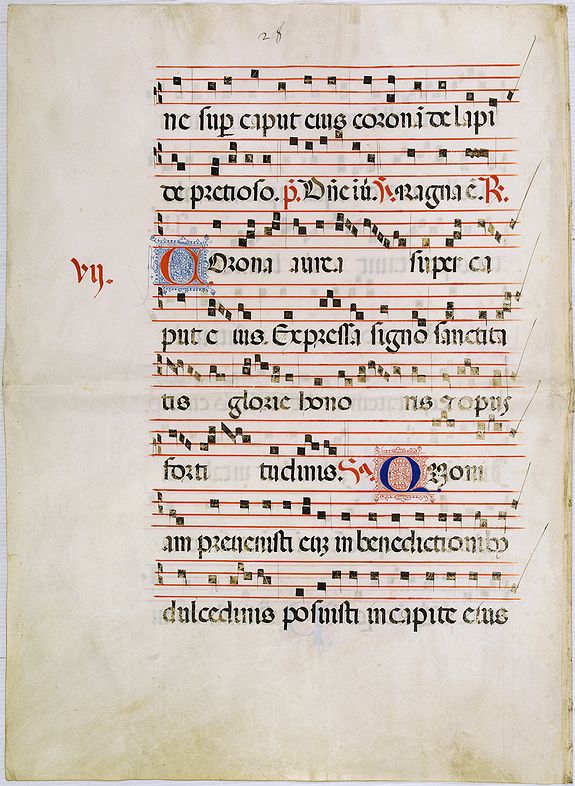 28
ne sup caput eius coronã de lapi
de pretioso. p̃. Dñe iũ. Ꝟ. Magna ẽ. R.
vij. Corona aurea super ca
put e ius. Expressa signo sanctita
tis glorie hono ris ⁊ opus
forti tudinis. Qm̃oni
am preuenisti eũ in benedictionibꝫ
dulcedinis posuisti in capite eius